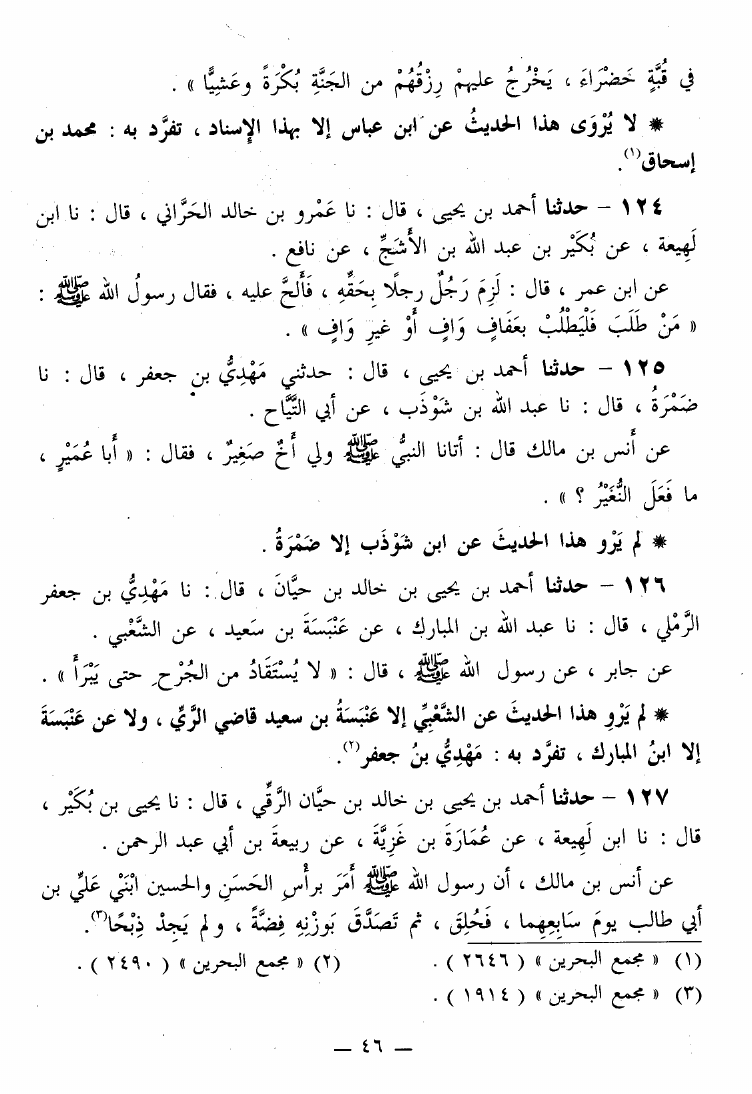 في قُبَّةٍ خَضْرَاءَ ، يَخْرُجُ عليهمْ رِزْقُهُمْ من الجَنَّةِ بُكْرَةً وعَشِيًّا » .
* لا يُرْوَى هذا الحديثُ عن ابن عباس إلا بهذا الإسناد ، تفرَّد به : محمد بن
إسحاق(١).
١٢٤ - حدثنا أحمد بن يحيى ، قال : نا عَمْرو بن خالد الحَرَّاني ، قال : نا ابن
لَهِيعة ، عن بُكَيْر بن عبد الله بن الأَشَجِّ ، عن نافع .
عن ابن عمر ، قال : لَزِمَ رَجُلٌ رجلًا بِحَقِّهِ ، فَأَلحَّ عليه ، فقال رسولُ الله ﷺ :
« مَنْ طَلَبَ فَلْيَطْلُبْ بعَفَافٍ وَافٍ أَوْ غيرِ وَافٍ » .
١٢٥ - حدثنا أحمد بن يحيى ، قال : حدثني مَهْدِيُّ بن جعفر ، قال : نا
ضَمْرَةُ ، قال : نا عبد الله بن شَوْذَب ، عن أبي التَّيَّاح .
عن أَنس بن مالك قال : أتانا النبيُّ ﷺ ولي أَخٌ صَغِيرٌ ، فقال : « أَبا عُمَيْرٍ ،
ما فَعَلَ النُّغَيْرُ ؟ » .
* لم يَرْوِ هذا الحديثَ عن ابن شَوْذَب إلا ضَمْرَةُ .
١٢٦ - حدثنا أحمد بن يحيى بن خالد بن حيَّانَ ، قال : نا مَهْدِيُّ بن جعفر
الرَّمْلي ، قال : نا عبد الله بن المبارك ، عن عَنْبَسَةَ بن سَعيد ، عن الشَّعْبي .
عن جابر ، عن رسول الله ﷺ ، قال : « لا يُسْتَقَادُ من الجُرْحِ حتى يَبْرَأَ » .
* لم يَرْوِ هذا الحديثَ عن الشَّعْبِيِّ إلا عَنْبَسَةُ بن سعيد قاضي الرَّيِّ ، ولا عن عَنْبَسَةَ
إلا ابنُ المبارك ، تفرَّد به : مَهْدِيُّ بنُ جعفر(٢).
١٢٧ - حدثنا أحمد بن يحيى بن خالد بن حيَّان الرَّقِّي ، قال : نا يحيى بن بُكَيْر ،
قال : نا ابن لَهِيعة ، عن عُمَارَةَ بن غَزِيَّةَ ، عن ربيعةَ بن أبي عبد الرحمن .
عن أنس بن مالك ، أن رسول الله ﷺ أَمَرَ برأْسِ الحَسَنِ والحسين ابْنَيْ عَليِّ بن
أبي طالب يومَ سَابِعِهِما ، فَحُلِقَ ، ثم تَصَدَّقَ بوَزْنِهِ فِضَّةً ، ولم يَجِدْ ذِبْحًا(٣).
(١) « مجمع البحرين » ( ٢٦٤٦ ) . (٢) « مجمع البحرين » ( ٢٤٩٠ ) .
(٣) « مجمع البحرين » ( ١٩١٤ ) .
— ٤٦ —